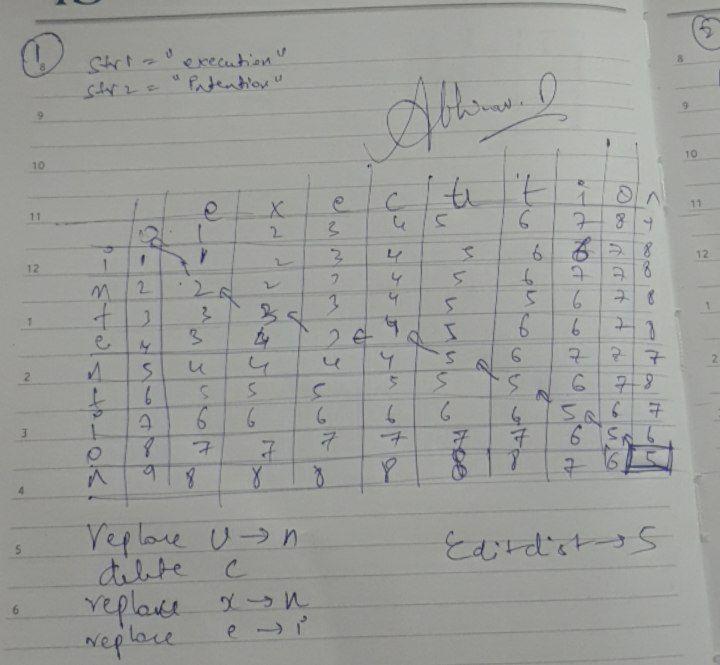 1
Str1 = "execution"
Str2 = "Intention"
Abhinav. D
e x e c u t i o n
0 1 2 3 4 5 6 7 8 9
i 1 1 2 3 4 5 6 6 7 8
n 2 2 2 3 4 5 6 7 7 8
t 3 3 3 3 4 5 5 6 7 8
e 4 3 4 3 4 5 6 6 7 8
n 5 4 4 4 4 5 6 7 7 7
t 6 5 5 5 5 5 5 6 7 8
i 7 6 6 6 6 6 6 5 6 7
o 8 7 7 7 7 7 7 6 5 6
n 9 8 8 8 8 8 8 7 6 5
replace u → n
delete c
replace x → n
replace e → i
Editdist → 5
8
9
10
11
12
1
2
3
4
5
6
8
9
10
11
12
1
2